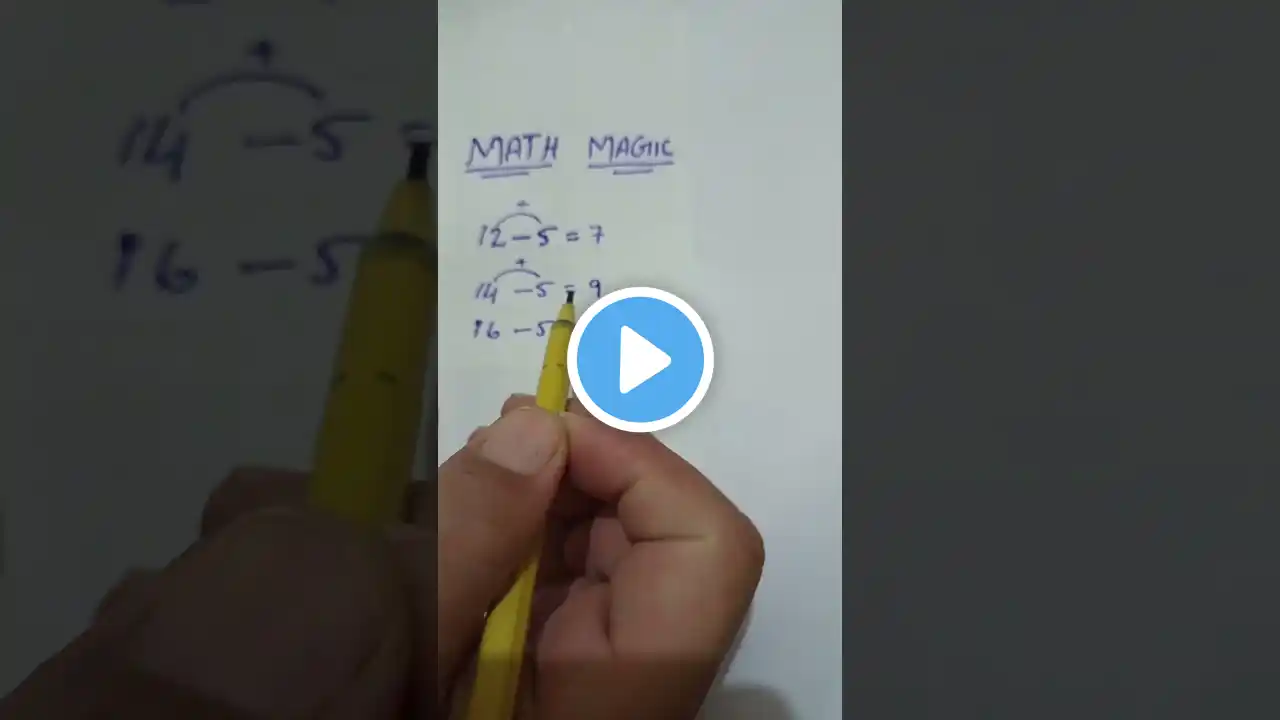 MATH MAGIC
+
12 - 5 = 7
+
14 - 5 = 9
16 - 5